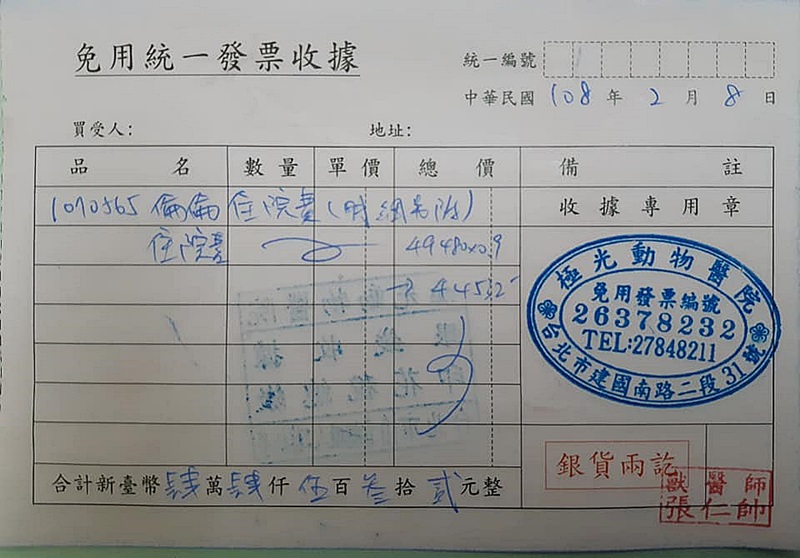 免用統一發票收據
統一編號
中華民國 108 年 2 月 8 日
買受人: 地址:
品名 數量 單價 總價 備註
1070565 倫倫 住院費(明細另附) 收據專用章
住院費 49480x0.9
→ 44532
極光動物醫院
免用發票編號
26378232
TEL:27848211
台北市建國南路二段31號
銀貨兩訖
獸醫師
張仁帥
合計新臺幣 肆 萬 肆 仟 伍 百 叁 拾 貳 元整